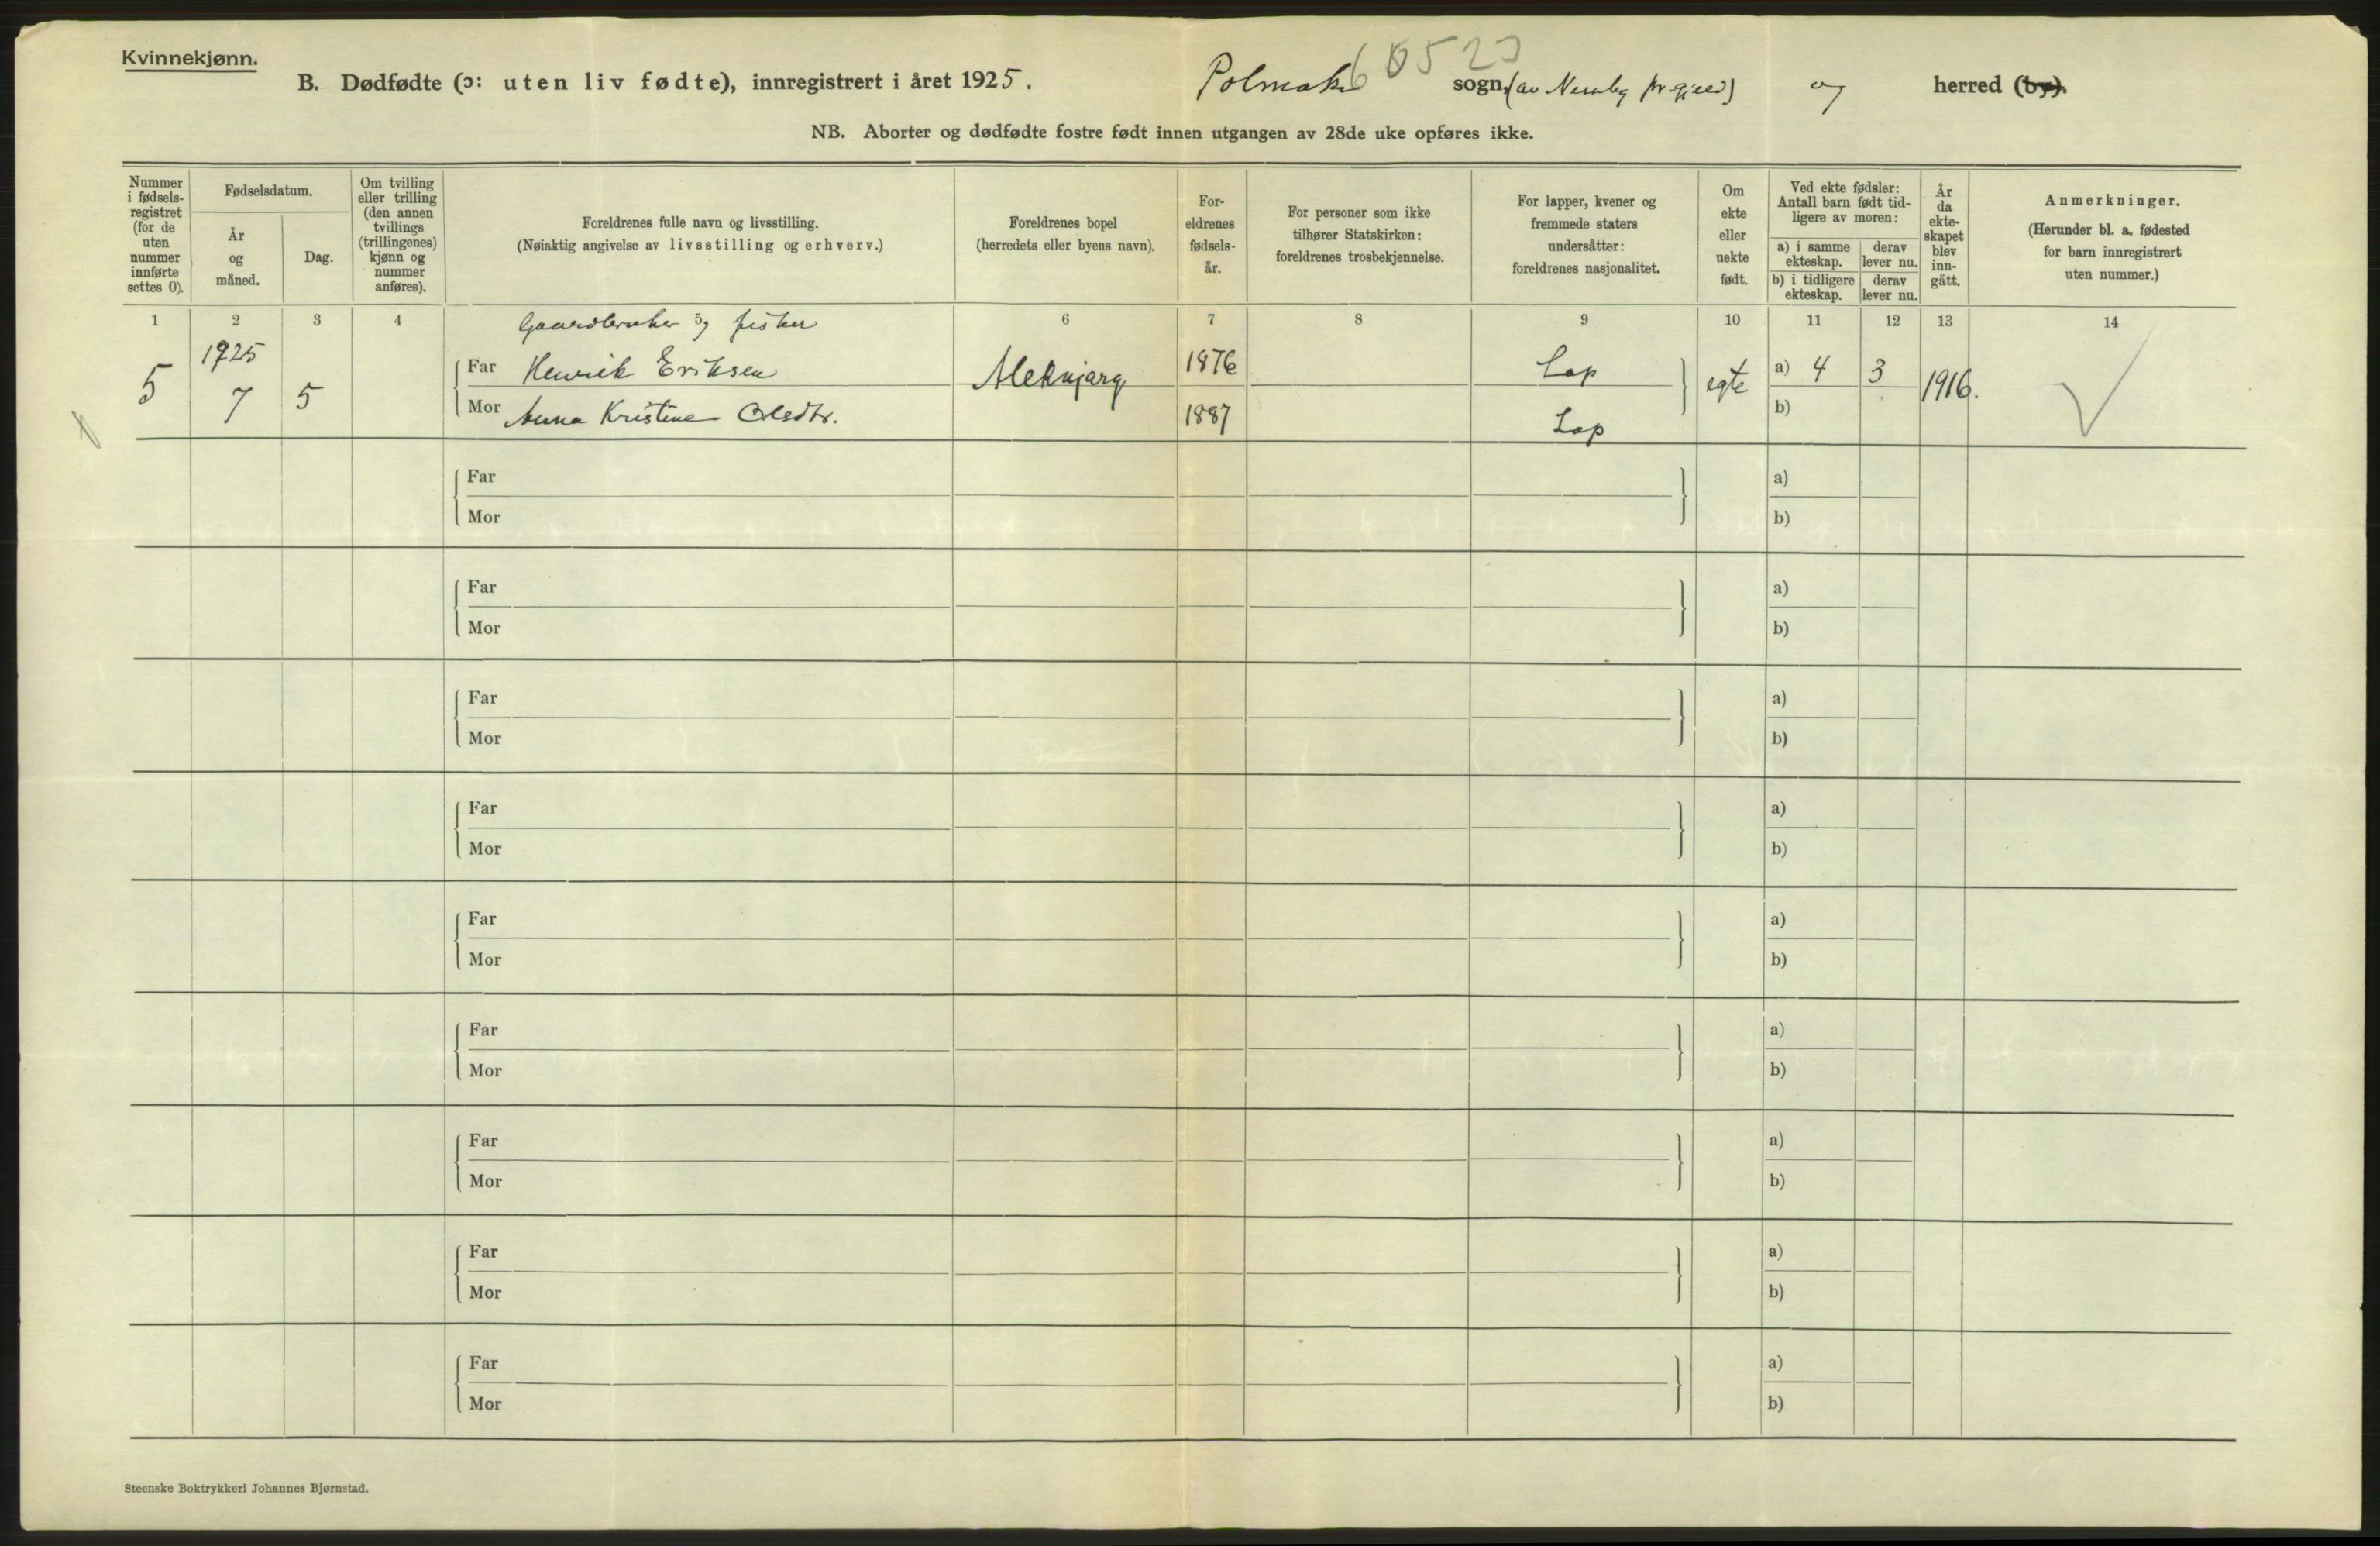 Kvinnekjønn.
B. Dødfødte (ɔ: uten liv fødte), innregistrert i året 1925. Polmak sogn, (av Nesseby pr.gjeld) og herred (by).
60523
NB. Aborter og dødfødte fostre født innen utgangen av 28de uke opføres ikke.
Nummer i fødsels-registret (for de uten nummer innførte settes 0).
Fødselsdatum.
År og måned.
Dag.
Om tvilling eller trilling (den annen tvillings (trillingenes) kjønn og nummer anføres).
Foreldrenes fulle navn og livsstilling.
(Nøiaktig angivelse av livsstilling og erhverv.)
Foreldrenes bopel
(herredets eller byens navn).
For-eldrenes fødsels-år.
For personer som ikke tilhører Statskirken: foreldrenes trosbekjennelse.
For lapper, kvener og fremmede staters undersåtter: foreldrenes nasjonalitet.
Om ekte eller uekte født.
Ved ekte fødsler: Antall barn født tid-ligere av moren:
a) i samme ekteskap.
derav lever nu.
b) i tidligere ekteskap.
derav lever nu.
År da ekte-skapet blev inn-gått.
Anmerkninger.
(Herunder bl. a. fødested for barn innregistrert uten nummer.)
1 2 3 4 5 6 7 8 9 10 11 12 13 14
Gaardbruker og fisker
5 1925 7 5
Far Henrik Eriksen Aleknjarg 1876 Lap egte a) 4 3 1916.
Mor Anna Kristine Olsdtr. 1887 Lap b)
Far a)
Mor b)
Far a)
Mor b)
Far a)
Mor b)
Far a)
Mor b)
Far a)
Mor b)
Far a)
Mor b)
Far a)
Mor b)
Far a)
Mor b)
Far a)
Mor b)
Steenske Boktrykkeri Johannes Bjørnstad.